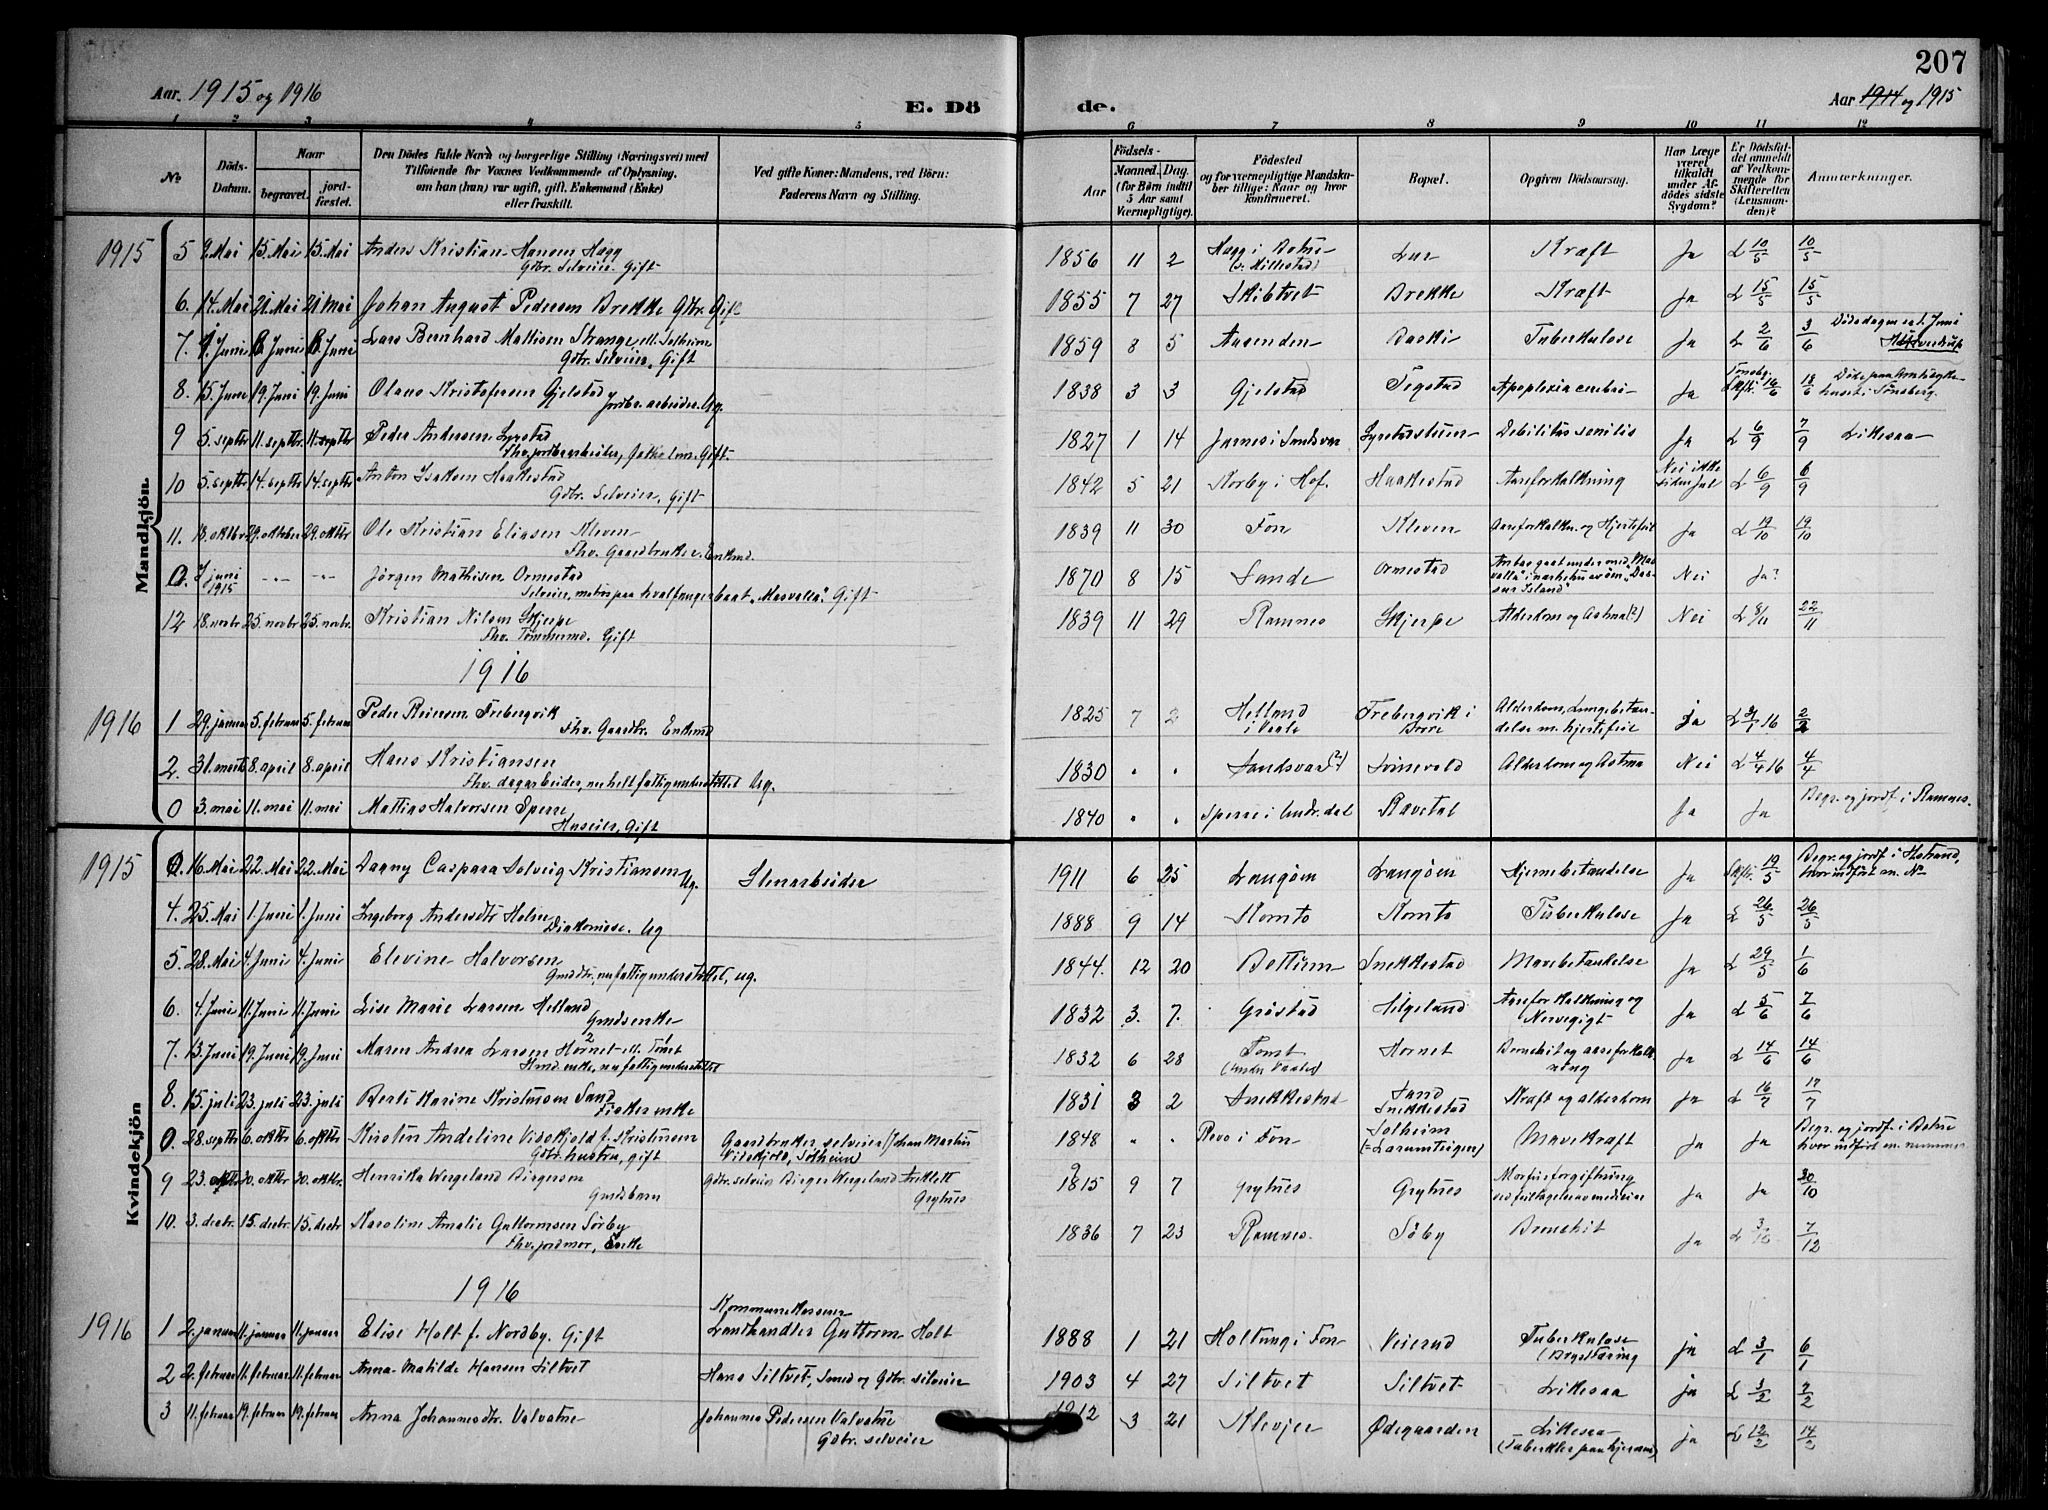 207
Aar. 1915 og 1916
E. Dö
de.
Aar 1914 og 1915
1 2 3 4 5 6 7 8 9 10 11 12
No
Döds-Datum.
Naar
begravet.
jord-fæstet.
Den Dödes fulde Navn og borgerlige Stilling (Næringsvei) med
Tilföiende for Voxnes Vedkommende af Oplysning,
om han (hun) var ugift, gift, Enkemand (Enke)
eller fraskilt.
Ved gifte Koner: Mandens, ved Börn:
Faderens Navn og Stilling.
Födsels-
Aar
Maaned. Dag.
(for Börn indtil
5 Aar samt
Værnepligtige).
Födested
og for værnepligtige Mandska-
ber tillige: Naar og hvor
konfirmeret.
Bopæl.
Opgiven Dödsaarsag.
Har Læge
været
tilkaldt
under Af-
dödes sidste
Sygdom?
Er Dödsfal-
det anmeldt
af Vedkom-
mende for
Skifteretten
(Lensman-
den)?
Anmærkninger.
Mandkjön.
1915
5 9. Mai 15. Mai 15. Mai Anders Kristian Hansen Hagg 1856 11 2 Hagg i Botne Kræft Ja L 10/5 10/5
Gdbr. Selveier. Gift
6. 14. Mai 21. Mai 21 Mai Johan August Pedersen Brekke Gdbr. Gift 1855 7 27 Skibtvet Brekke Kræft Ja L 15/5 15/5
7. 1. Juni 8 Juni 8. Juni Lars Bernhard Mathisen Strange, ell. Solheim 1859 8 5 Aasenden Tuberkulose Ja L 2/6 3/6
Gdbr. Selveier, Gift
8. 15. Juni 19. Juni 19. Juni Olaus Kristofersen Gjelstad 1838 3 3 Gjelstad Tegstad Apoplexia cerebri Ja 16/6 18/6 Döde paa Arbeids-
huset i Tönsberg.
Jordbr. arbeider. Ug.
9 5. septbr 11. septbr 11. septbr Peder Andersen Lyrstad 1827 1 14 Sandsvær Debilitas senilis Ja L 6/9 7/9 Likesaa
Fhv. jordbrarbeider, Gift.
10 5. septbr 14. septbr 14. septbr Anton Isaksen Haakestad 1842 5 21 Korby i Hof. Haakestad Aareforkalkning Nei ikke siden Jul L 6/9 6/9
Gdbr. Selveier, Gift
11. 18. oktbr 29. oktober 29. oktbr Ole Kristian Eliasen Kleven 1839 11 30 Fon Kleven Aareforkalkn. og Hjertefeil Ja L 19/10 19/10
Fhv. Gaardbruker. Enkmd.
0. 7 juni 1915 Jörgen Mathisen Ormestad 1870 8 15 Sande Ormestad Nei Ja?
Selveier, matros paa hvalfangerbaat „Masvalla". Gift
12 18. novbr 25. novbr 25. novbr. Kristian Nilsen Skjerpe 1839 11 29 Ramnes Skjerpe Alderdom og Astma(?) Nei L 8/11 22/11
Fhv. Tömmermd. Gift
1916
1916
1 29. januar 5. februar 5. februar Peder Reiersen Frebergvik 1825 7 2 Helland i Vaale Frebergvik i Borre Alderdom, Lungebetæn-
delse m. hjertefeil ja L 16 2/2
Fhv. Gaardbr. Enkmd
2. 31. marts 8 april 8. april Hans Kristiansen 1830 " " Sandsvær(?) Alderdom og Astma Nei L 4/4 16 4/4
Fhv. dagarbeider, nu helt fattigunderstöttet Ug.
0 3. mai 11. mai 11. mai Mathias Halvorsen Sperre 1840 " " Ravstal Ja Ja Begr. og jordf. i Ramnes.
Huseier, Gift
Kvindekjön
1915
0. 16. Mai 22. Mai 22. Mai Dagny Caspara Solveig Kristiansen Ug. Stenarbeider 1911 6 25 Langöen Langöen Hjernebetændelse Ja 19/5 Begr. og jordf. i Hostrand, hvor indfört m. No
4. 25. Mai 1. Juni 1. Juni Ingeborg Andersdtr Holm 1888 9 14 Komto Komto Tuberkulose Ja L 26/5 26/5
Diakonisse. Ug
5. 28. Mai 4. Juni 4. Juni Elevine Halvorsen 1844. 12 20 Bottum Snekkestad Mavebetændelse Ja L 29/5 1/6
Gmdsdtr, nu fattigunderstöttet, ug.
6. 4. Juni 11. Juni 11. Juni Lise Marie Larsen Helland 1832 3. 7. Gröstad Helgeland Aareforkalkning og
Nervegigt Ja L 5/6 7/6
Gmdsenke
7. 13. Juni 19. Juni 19. Juni Maren Andrea Larsen Hornet ell. Tömt 1832 6 28 Tomt Hornet Bronchit og aareforkalk-
ning Ja L 14/6 14/6
Gmd. enke, nu fattigunderstöttet
8. 15. juli 23. juli 23. juli Berte Karine Kristensen Sand 1831 3 2 Snekkestad Sand
Snekkestad Kræft og alderdom Ja L 16/7 17/7
Fisker enke
0. 28. septbr 6. oktbr 6. oktbr Kirsten Andeline Videskjold f. Kristensen Gaardbruker, selveier Johan Martius
Videskjold, Solheim 1848 " " Revo i Fon Solheim Mavekræft Ja Ja Begr. og jordf. i Botne
hvor indfört m. nummer
Gdbr. hustru, gift
9 23. oktbr 30. oktbr 30. oktbr. Henrikka Wergeland Birgersen Gdbr. selveier Birger Wergeland 1815 9 7 Grytnes Grytnes Morfinforgiftning Ja Ja 30/10
Gmdsbarn Grytnes
10. 3. decbr. 15. decbr. 15. decbr Karoline Amalie Guttormsen Sörby 1836 7 23 Ramnes Söby Bronchit Ja L 7/12
Fhv. jordmor, Enke
1916
1916
1 2. januar 11. januar 11. januar Elise Holt f. Nordby. Gift Kommunekasserer
Landhandler Guttorm Holt 1888 1 21 Holtung i Fon Veierud Tuberkulose
(Brysttæring ja L 3/1 6/1
2 2. februar 11. februar 11. februar Anna Matilde Hansen Siltvet Hans Siltvet, Smed og Gdbr. selveier 1903 4 27 Siltvet Siltvet Likesaa ja L 3/2 7/2
3 11. februar 19. februar 19. februar Anna Johannesdtr. Valvatne Johannes Pedersen Valvatne
Gdbr. selveier 1912 3 21 Klevjer Ødegaarden Likesaa
(Tuberkler paa hjernen) ja L 12/2 14/2